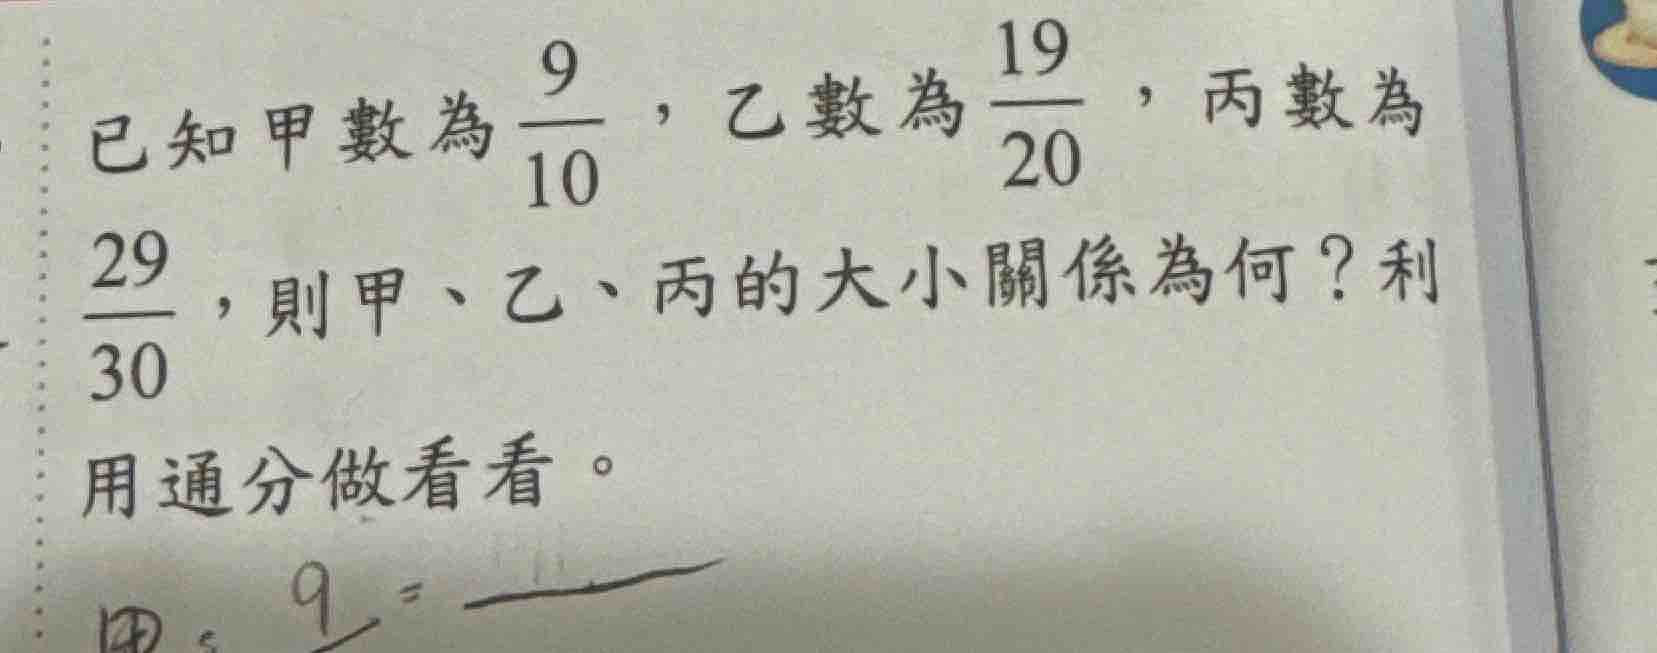 已知甲數為 9/10 ，乙數為 19/20 ，丙數為
29/30 ，則甲、乙、丙的大小關係為何？利
用通分做看看。
甲： 9 =